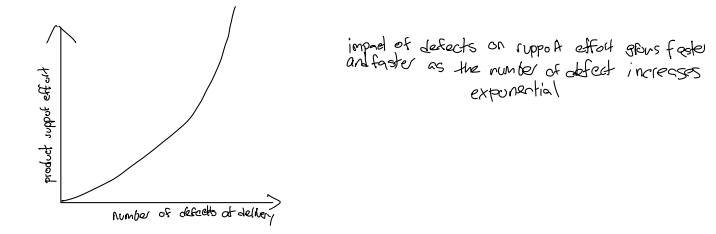 product support effort
number of defects at delivery
impact of defects on support effort grows faster
and faster as the number of defect increases
exponential